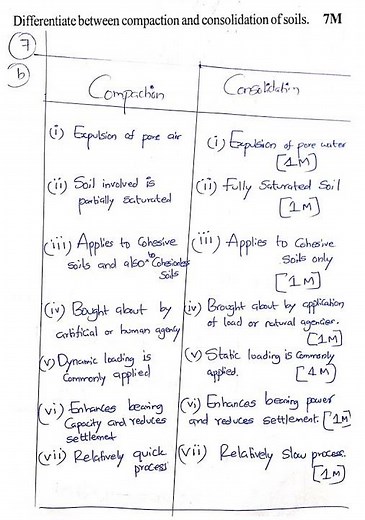 Differentiate between compaction and consolidation of soils. 7M
7
b
Compaction
Consolidation
(i) Expulsion of pore air
(i) Expulsion of pore water
[1M]
(ii) Soil involved is
partially saturated
(ii) Fully Saturated Soil
[1M]
(iii) Applies to Cohesive
soils and also to Cohesionless
Soils
(iii) Applies to Cohesive
Soils only
[1M]
(iv) Bought about by
artificial or human agency
(iv) Brought about by application
of load or natural agencies.
[1M]
(v) Dynamic loading is
Commonly applied
(v) Static loading is Commonly
applied. [1M]
(vi) Enhances bearing
Capacity and reduces
settlement
(vi) Enhances bearing power
and reduces settlement. [1M]
(vii) Relatively quick
process
(vii) Relatively slow process.
[1M]